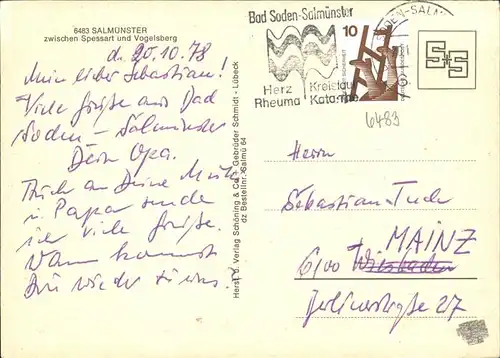 6483 SALMÜNSTER
zwischen Spessart und Vogelsberg
d. 20.10.78
Mein lieber Sebastian!
Viele Grüße aus Bad
Soden - Salmünster
Dein Opa.
Auch an Deine Mutti
u. Papa sende
ich viele Grüße.
Wann kommst
Du wieder zu uns?
Herst. u. Verlag Schöning & Co. + Gebrüder Schmidt - Lübeck
dz Bestellnr. Salmü 64
Bad Soden-Salmünster
Herz Kreislauf
Rheuma Katarrhe
10
S+S
6483
Herrn
Sebastian Tuch
MAINZ
6100 Wiesbaden
Berlinerstraße 27